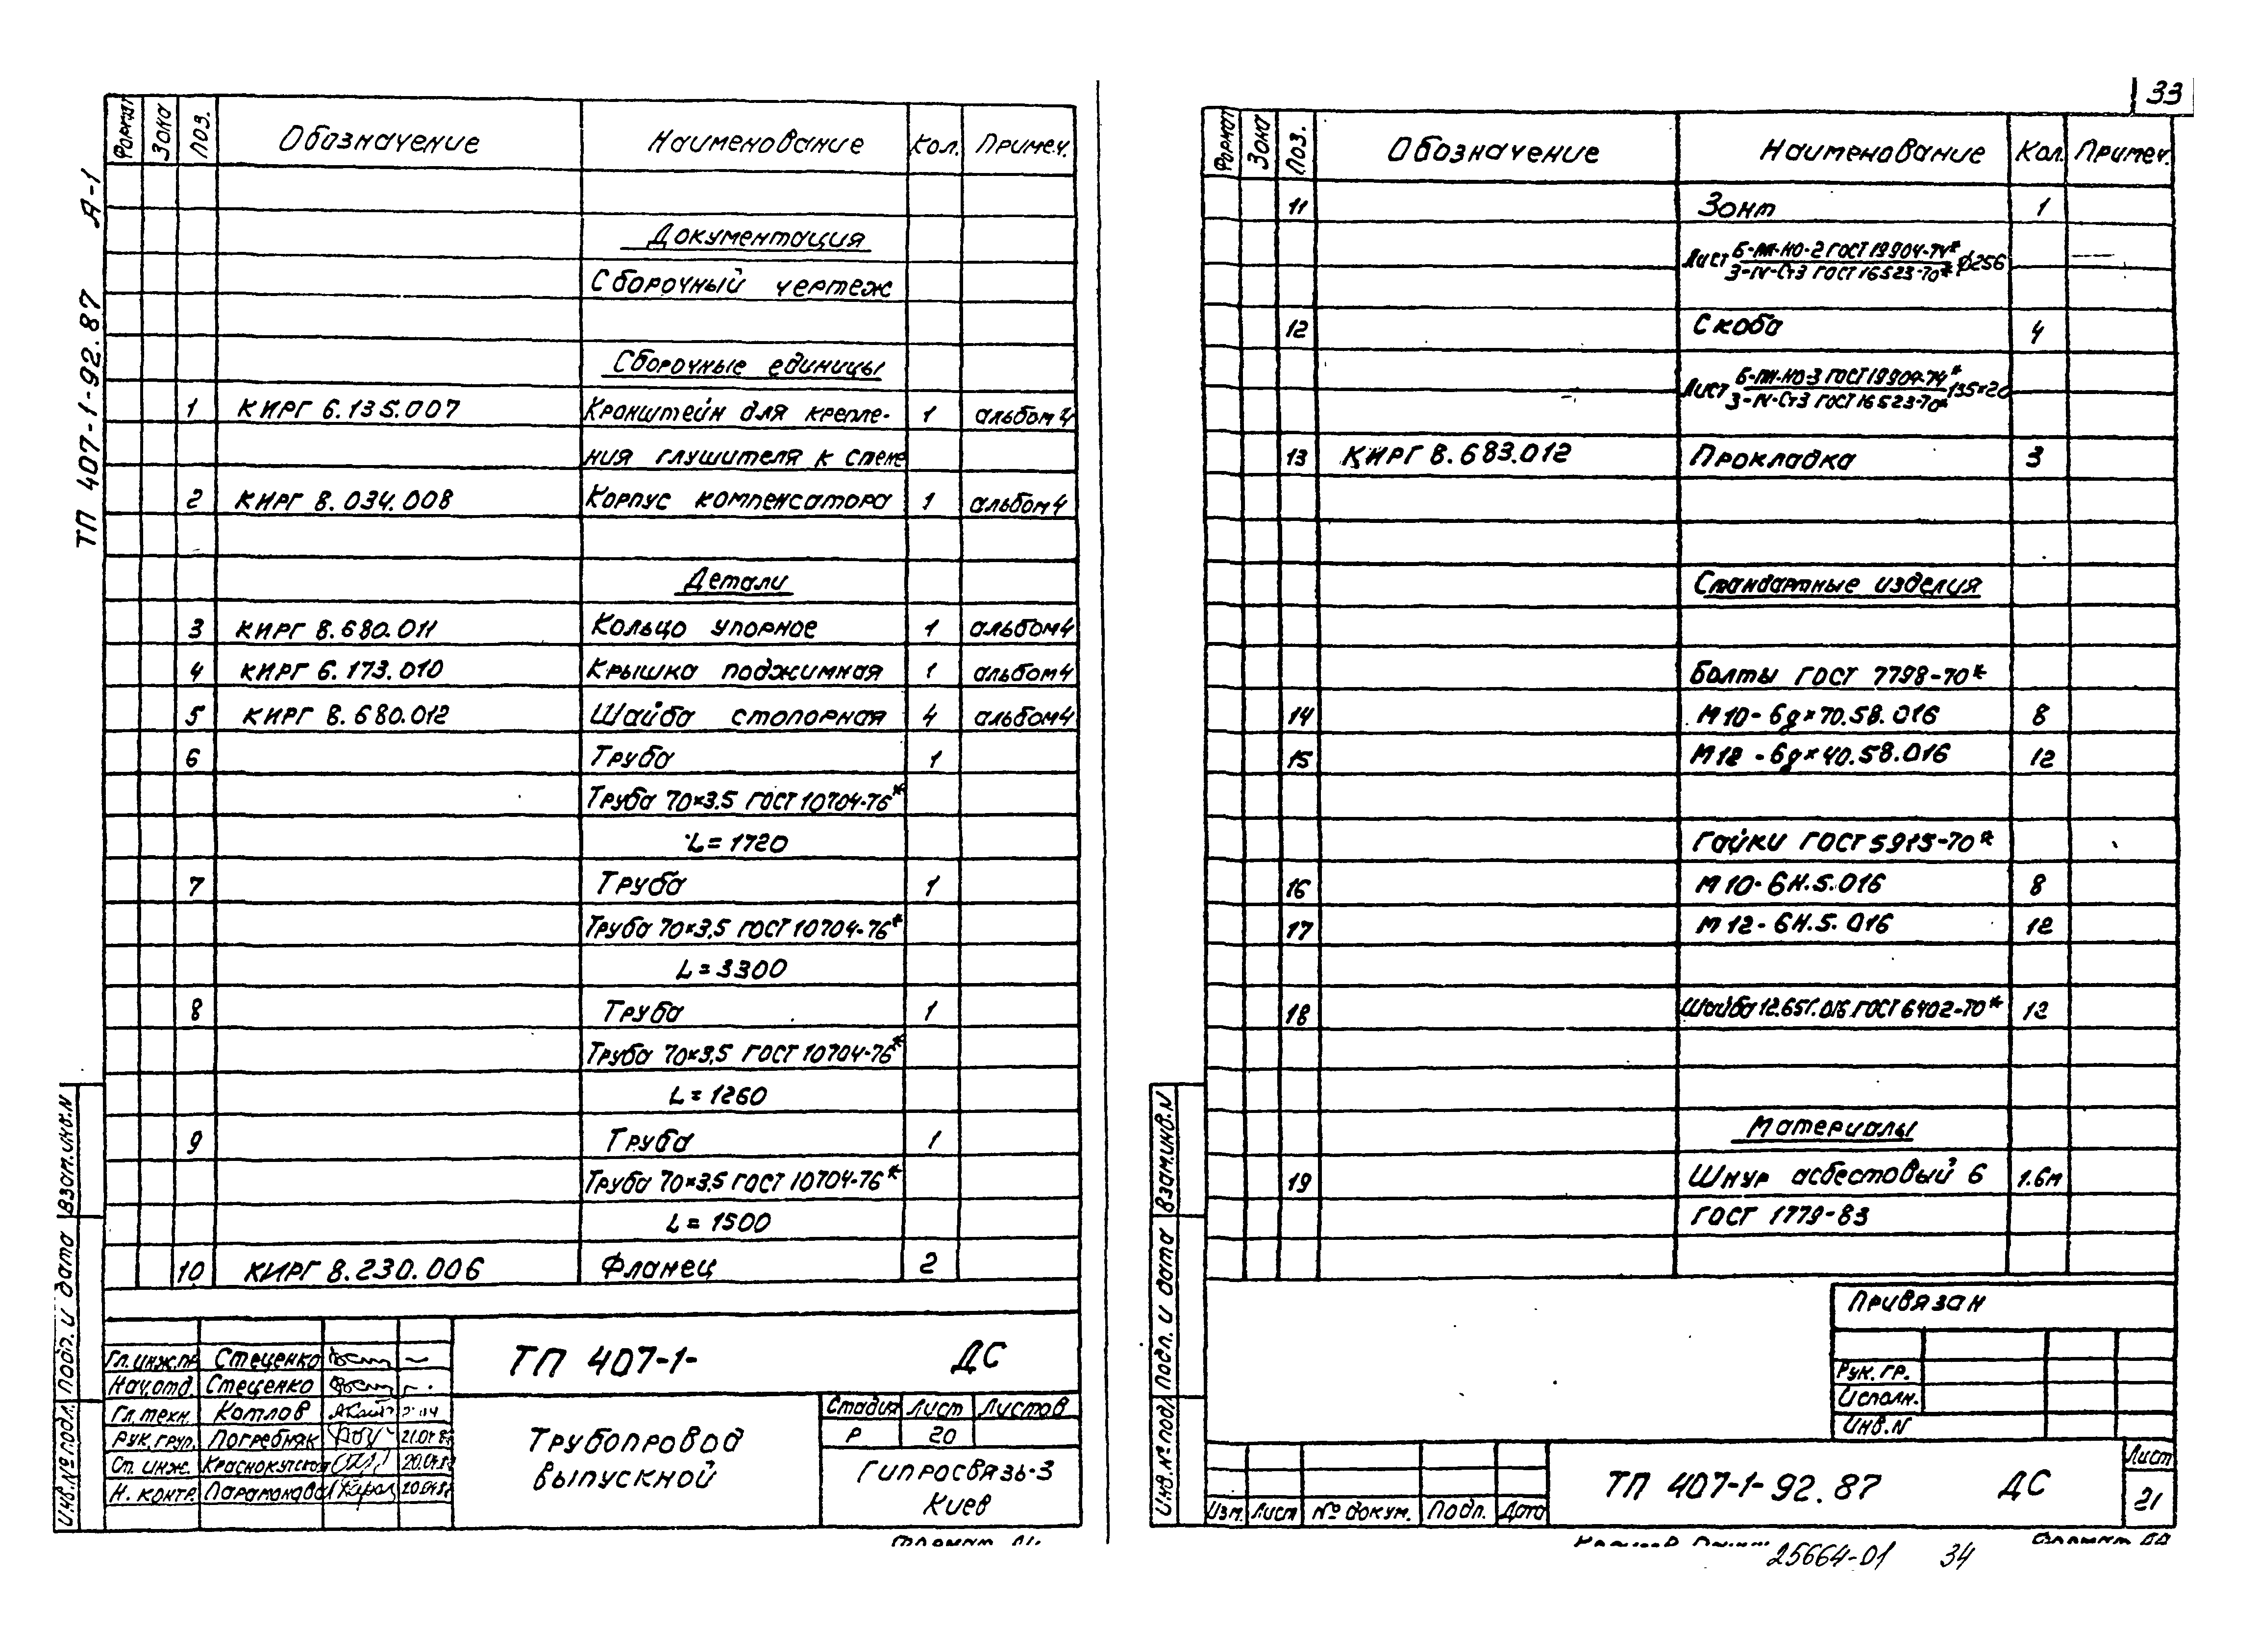 ТП 407-1-92.87 А-1
Формат Зона Поз. Обозначение Наименование Кол. Примеч.
Документация
Сборочный чертеж
Сборочные единицы
1 КИРГ 6.135.007 Кронштейн для крепле- 1 альбом 4
ния глушителя к стене
2 КИРГ 8.034.008 Корпус компенсатора 1 альбом 4
Детали
3 КИРГ 8.680.011 Кольцо упорное 1 альбом 4
4 КИРГ 6.173.010 Крышка поджимная 1 альбом 4
5 КИРГ 8.680.012 Шайба стопорная 4 альбом 4
6 Труба 1
Труба 70×3.5 ГОСТ 10704-76*
L = 1720
7 Труба 1
Труба 70×3.5 ГОСТ 10704-76*
L = 3300
8 Труба 1
Труба 70×3.5 ГОСТ 10704-76*
L = 1260
9 Труба 1
Труба 70×3.5 ГОСТ 10704-76*
L = 1500
10 КИРГ 8.230.006 Фланец 2
Взам.инв.N
Подп. и дата
Инв.№ подл.
Гл.инж.пр. Стеценко
Нач.отд. Стеценко
Гл.техн. Котлов
Рук.груп. Погребняк
Ст. инж. Краснокутская
Н. контр. Парамонова
ТП 407-1- ДС
Трубопровод
выпускной
Стадия Лист Листов
Р 20
Гипросвязь-3
Киев
33
Формат Зона Поз. Обозначение Наименование Кол. Примеч.
11 Зонт 1
Лист Б-ПН-НО-2 ГОСТ 19904-74* ∅256
3-IV-Ст3 ГОСТ 16523-70*
12 Скоба 4
Лист Б-ПН-НО-3 ГОСТ 19904-74* 135×20
3-IV-Ст3 ГОСТ 16523-70*
13 КИРГ 8.683.012 Прокладка 3
Стандартные изделия
Болты ГОСТ 7798-70*
14 М10-6g×70.58.016 8
15 М12-6g×40.58.016 12
Гайки ГОСТ 5915-70*
16 М10-6Н.5.016 8
17 М12-6Н.5.016 12
18 Шайба 12.65Г.016 ГОСТ 6402-70* 12
Материалы
19 Шнур асбестовый 6 1.6м
ГОСТ 1779-83
Взам.инв.N
Подп. и дата
Инв.№ подл.
Привязан
Рук. гр.
Исполн.
Инв.N
Изм. Лист № докум. Подп. Дата
ТП 407-1-92.87 ДС
Лист
21
25664-01 34